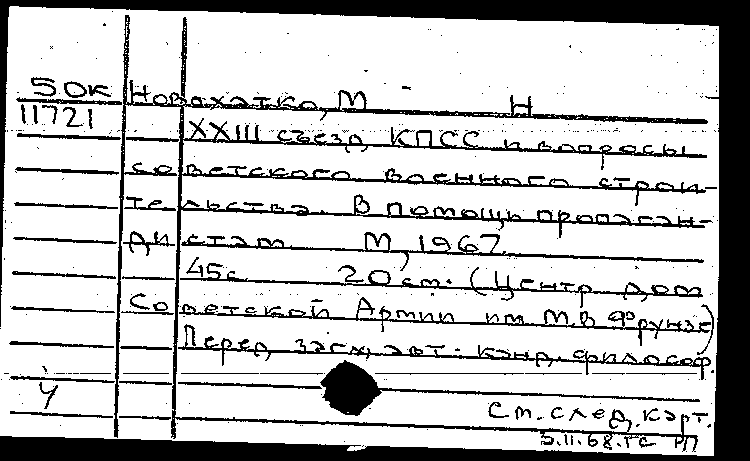 50к Новохатко, М Н
11721
XXIII съезд КПСС и вопросы
советского военного строи-
тельства. В помощь пропаган-
дистам М, 1967.
45с 20 см. (Центр дом
Советской Армии им М.В Фрунзе)
Перед загл, авт: канд. философ.
ч
См. след, карт.
5.11.68. ГС РП